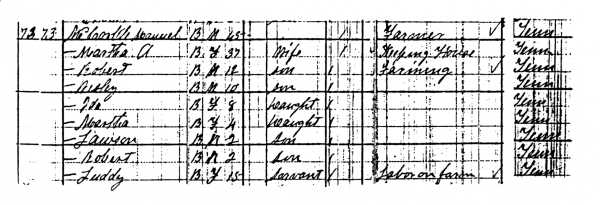 73 73 McCorkle Samuel B M 45 Farmer ✓ Tenn
— Martha A B F 37 Wife 1 Keeping House Tenn
— Robert B M 12 Son 1 Farming ✓ Tenn
— B M 10 Son 1 Tenn
— Ida B F 8 Daught 1 Tenn
— Martha B F 4 Daught 1 Tenn
— Lawson B M 2 Son 1 Tenn
— Robert B M 2 Son 1 Tenn
— Luddy B F 15 Servant 1 Labor on farm ✓ Tenn